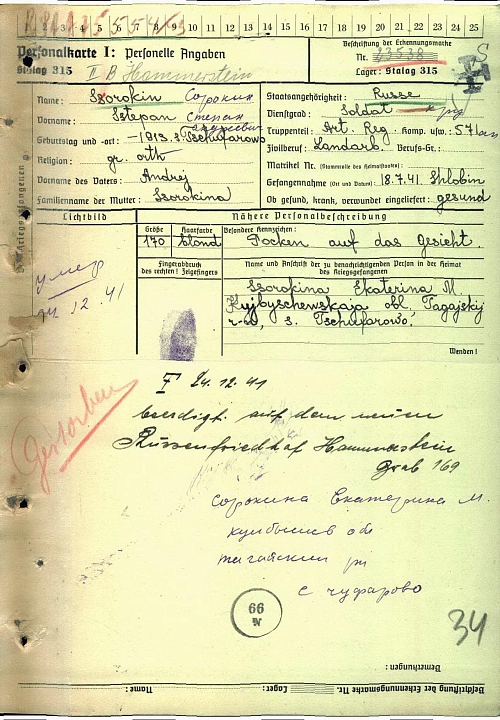 1 2 3 4 5 6 7 8 9 10 11 12 13 14 15 16 17 18 19 20 21 22 23 24 25
Personalkarte I: Personelle Angaben
Stalag 315 II B Hammerstein
Beschriftung der Erkennungsmarke
Nr. 23538
Lager: Stalag 315
Des Kriegsgefangenen
Name: Ssorokin Сорокин
Vorname: Sstepan Степан
Geburtstag und -ort: -1913. s. Tschufarowo
Religion: gr. orth
Vorname des Vaters: Andrej
Familienname der Mutter: Ssorokina
Staatsangehörigkeit: Russe
Dienstgrad: Soldat
Truppenteil: Art. Reg. Komp. usw.: 571
Zivilberuf: Landarb. Berufs-Gr.:
Matrikel Nr. (Stammrolle des Heimatstaates):
Gefangennahme (Ort und Datum): 18.7.41. Shlobin
Ob gesund, krank, verwundet eingeliefert: gesund
Lichtbild
умер
24.12.41
Nähere Personalbeschreibung
Größe Haarfarbe Besondere Kennzeichen:
170 blond Pocken auf das gesicht.
Fingerabdruck
des rechten! Zeigefingers
Name und Anschrift der zu benachrichtigenden Person in der Heimat
des Kriegsgefangenen
Ssorokina Ekaterina M.
Kujbyschewskaja obl. Tagajskij
r-n, s. Tschufarowo.
Wenden!
Gestorben
24.12.41
beerdigt auf dem neuen
Russenfriedhof Hammerstein
Grab 169
Сорокина Екатерина М.
куйбышев об
тагайский рн
с чуфарово
66
N
34
Bemerkungen:
Beschriftung der Erkennungsmarke Nr. Lager: Name: